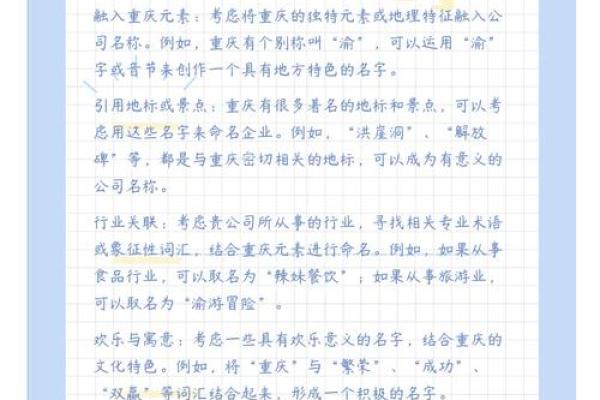 融入重庆元素：考虑将重庆的独特元素或地理特征融入公
司名称。例如，重庆有个别称叫“渝”，可以运用“渝”
字或音节来创作一个具有地方特色的名字。
引用地标或景点：重庆有很多著名的地标和景点，可以考
虑用这些名字来命名企业。例如，“洪崖洞”、“解放
碑”等，都是与重庆密切相关的地标，可以成为有意义的
公司名称。
行业关联：考虑贵公司所从事的行业，寻找相关专业术语
或象征性词汇，结合重庆元素进行命名。例如，如果从事
食品行业，可以取名为“辣妹餐饮”；如果从事旅游业，
可以取名为“渝游冒险”。
欢乐与寓意：考虑一些具有欢乐意义的名字，结合重庆的
文化特色。例如，将“重庆”与“繁荣”、“成功”、
“双赢”等词汇结合起来，形成一个积极的名字。